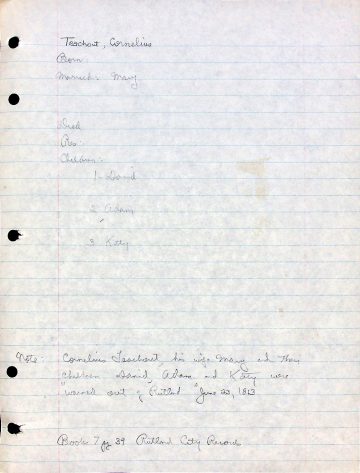 Teachout, Cornelius
Born:
Married: Mary
Died
Res:
Children:
1- David
2 Adam
3 Katy
Note: Cornelius Teachout his wife Mary and they
children David, Adam and Katy were
"warned out of Rutland" June 22, 1813
Book 7 pg 39 Rutland City Records